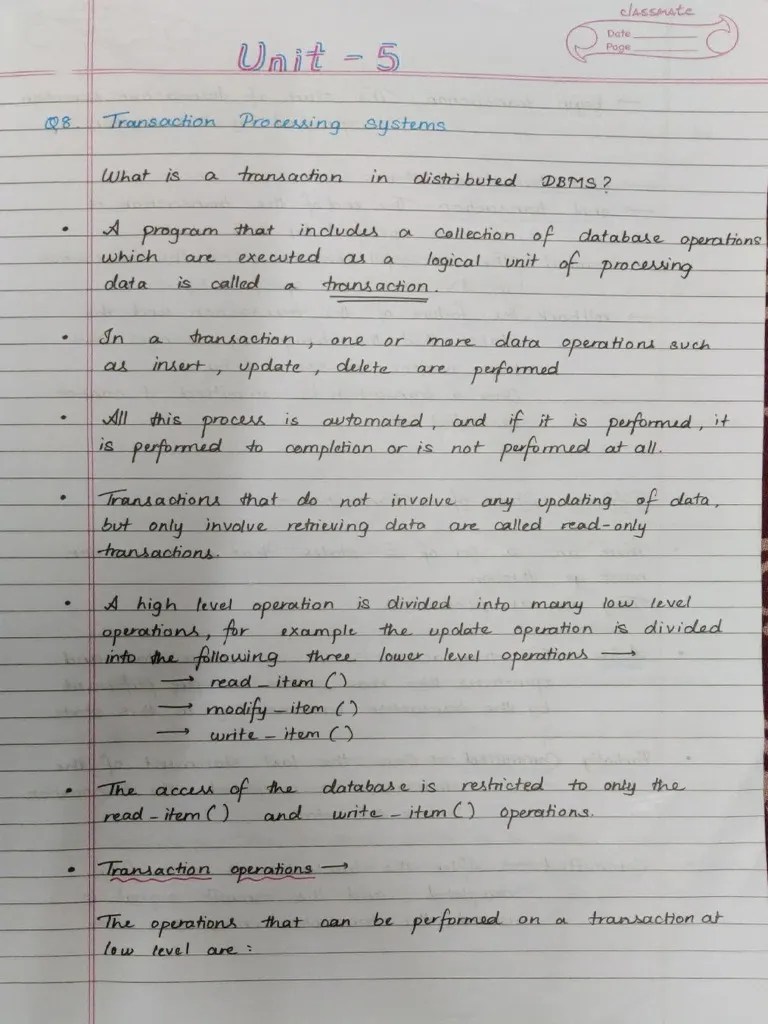 classmate
Date
Page
Unit - 5
Q8. Transaction Processing systems
What is a transaction in distributed DBMS?
• A program that includes a collection of database operations
which are executed as a logical unit of processing
data is called a transaction.
• In a transaction, one or more data operations such
as insert, update, delete are performed
• All this process is automated, and if it is performed, it
is performed to completion or is not performed at all.
• Transactions that do not involve any updating of data,
but only involve retrieving data are called read-only
transactions.
• A high level operation is divided into many low level
operations, for example the update operation is divided
into the following three lower level operations →
→ read-item ()
→ modify-item ()
→ write-item ()
• The access of the database is restricted to only the
read-item () and write-item () operations.
• Transaction operations →
The operations that can be performed on a transaction at
low level are :